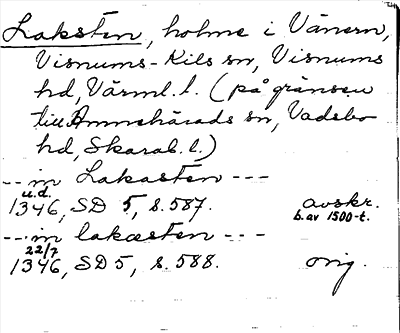 Laksten, holme i Vänern,
Visnums-Kils sn, Visnums
hd, Värml. l. (på gränsen
till Amnehärads sn, Vadsbo
hd, Skarab. l.)
--- in Lakasten ---
u.d.
1346, SD 5, s. 587. avskr.
b. av 1500-t.
--- in lakæsten ---
22/7
1346, SD 5, s. 588. orig.